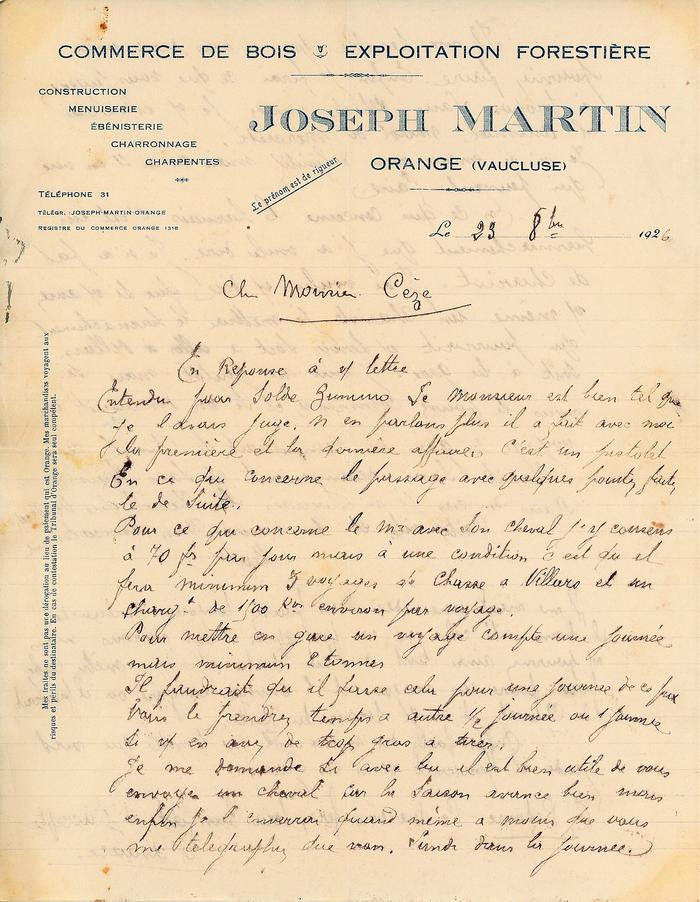 COMMERCE DE BOIS EXPLOITATION FORESTIÈRE
CONSTRUCTION
MENUISERIE
ÉBÉNISTERIE
CHARRONNAGE
CHARPENTES
JOSEPH MARTIN
ORANGE (VAUCLUSE)
Le prénom est de rigueur
TÉLÉPHONE 31
TÉLÉGR. JOSEPH-MARTIN-ORANGE
REGISTRE DU COMMERCE ORANGE 1318
Le 23 8bre 1926
Cher Monsieur Cèze
En Reponse à v/ lettre
Entendu pour Solde Zummo Le Monsieur est bien tel que
je l'avais juge. N en parlons plus il a fait avec moi
la première et la dernière affaire. C'est un pistolet
En ce qui concerne le passage avec quelques pointes faites
le de Suite.
Pour ce qui concerne le Mr avec Son cheval j'y consens
à 70 frs par jour mais à une condition c est qu il
fera minimum 3 voyages de Chasse a Villars et un
Charg.t de 1500 Kos environ par voyage.
Pour mettre en gare un voyage compte une Journée
mais minimum 2 tonnes
Il faudrait qu il fasse cela pour une Journée de ce prix
Vous le prendrez temps a autre 1/2 Journée ou 1 Journée
Si v/ en avez de trop gros a tirer.
Je me demande Si avec lui il est bien utile de vous
envoyer un cheval car la Saison avance bien mais
enfin Je l'enverrai quand même a moins que vous
me telegraphiez que non. Lundi dans la Journée.
Mes traites ne sont pas une dérogation au lieu de paiement qui est Orange. Mes marchandises voyagent aux
risques et périls du destinataire. En cas de contestation le Tribunal d'Orange sera seul compétent.